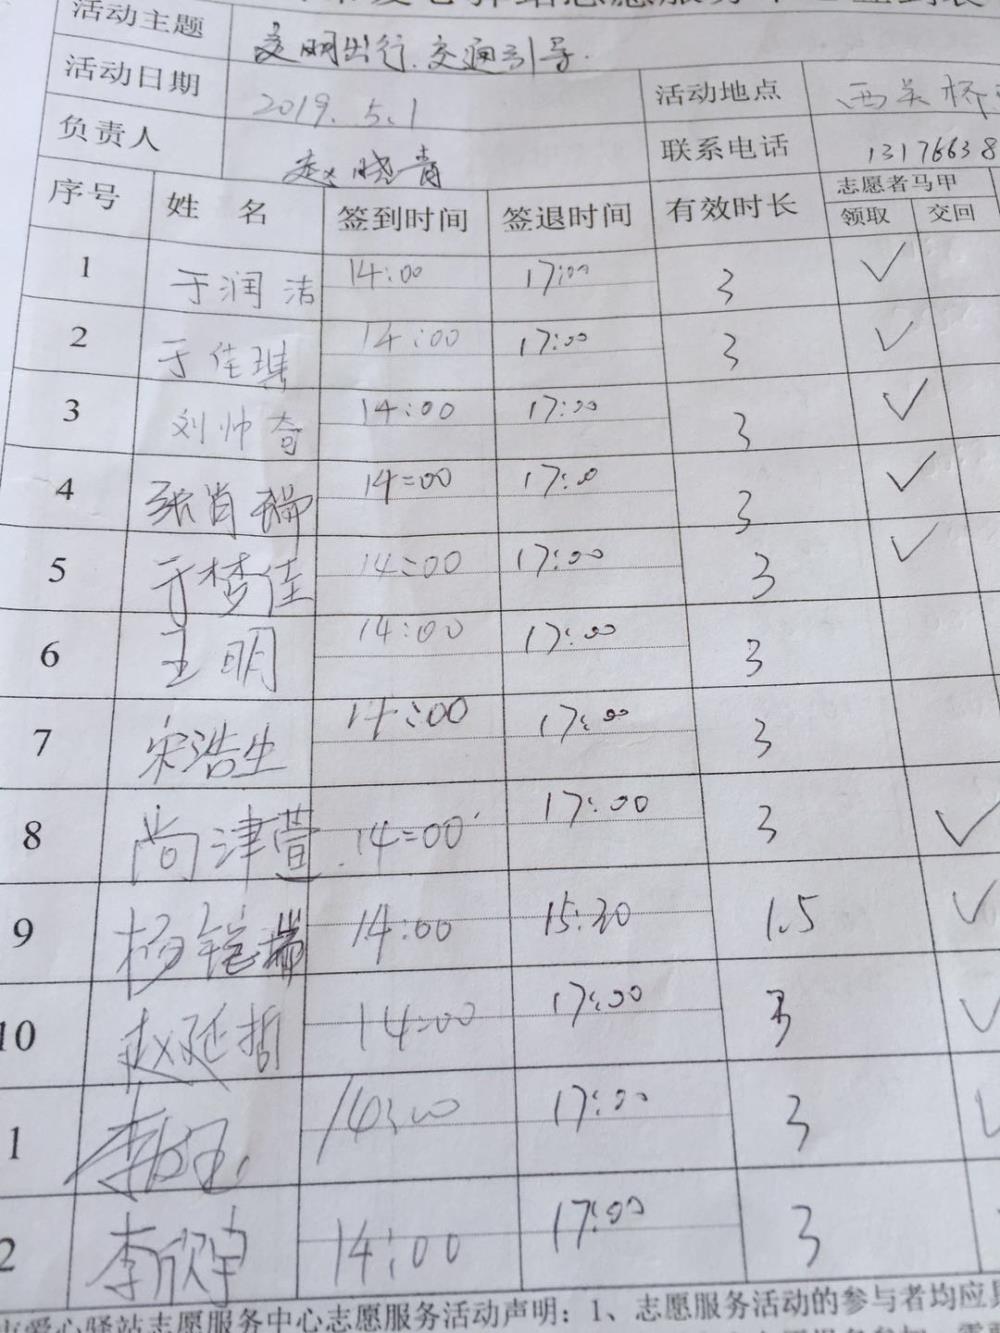 爱心驿站志愿服务中心签到表
活动主题 文明出行.交通引导.
活动日期 2019.5.1 活动地点 西关桥
负责人 赵晓青 联系电话 13176638
序号 姓 名 签到时间 签退时间 有效时长 志愿者马甲
领取 交回
1 于润洁 14:00 17:00 3 ✓
2 于佳琪 14:00 17:00 3 ✓
3 刘帅奇 14:00 17:00 3 ✓
4 张肖瑞 14:00 17:0 3 ✓
5 于梦佳 14:00 17:00 3 ✓
6 王明 14:00 17:00 3
7 宋浩生 14:00 17:00 3
8 尚津萱 14:00 17:00 3 ✓
9 杨铠瑞 14:00 15:30 1.5 ✓
10 赵延哲 14:00 17:00 3 ✓
1 李 14:00 17:00 3 ✓
2 李欣宇 14:00 17:00 3
爱心驿站志愿服务中心志愿服务活动声明：1、志愿服务活动的参与者均应